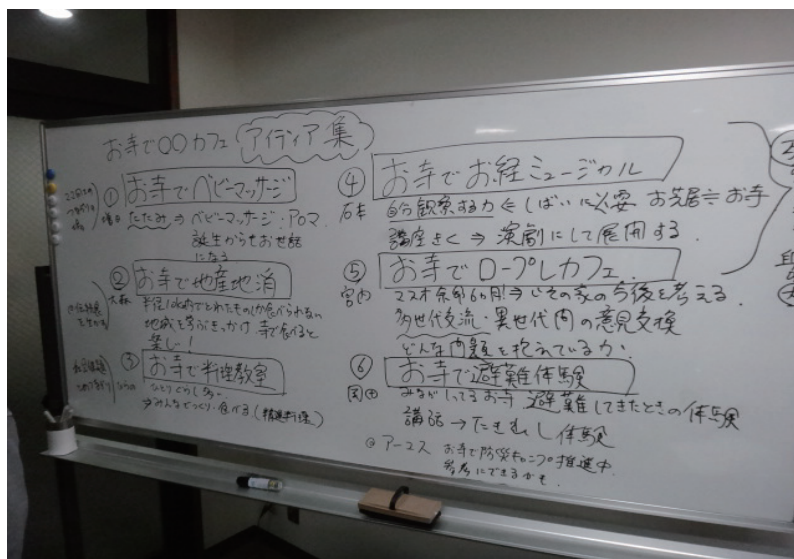 お寺で〇〇カフェ アイディア集
① お寺でベビーマッサージ
たたみ⇒ベビーマッサージ・アロマ
誕生からもお世話
になる
② お寺で地産地消
大森
半径10km内でとれたものしか食べられない
地域を学ぶきっかけ 寺で食べると
楽し!
③ お寺で料理教室
みんなでつくり・食べる(精進料理)
④ お寺でお経ミュージカル
石本
自分観察する力⇐しばいに必要 お芝居≒お寺
講座きく⇒演劇にして展開する.
⑤ お寺でロープレカフェ.
宮内
マスオ余命6ヶ月!⇒いその家の今後を考える.
多世代交流・異世代間の意見交換
どんな問題を抱えているか.
⑥ お寺で避難体験
みながしってるお寺 避難してきたときの体験
講話→たき出し体験
アーユス お寺で防災キャンプ推進中.
参考にできるかも.